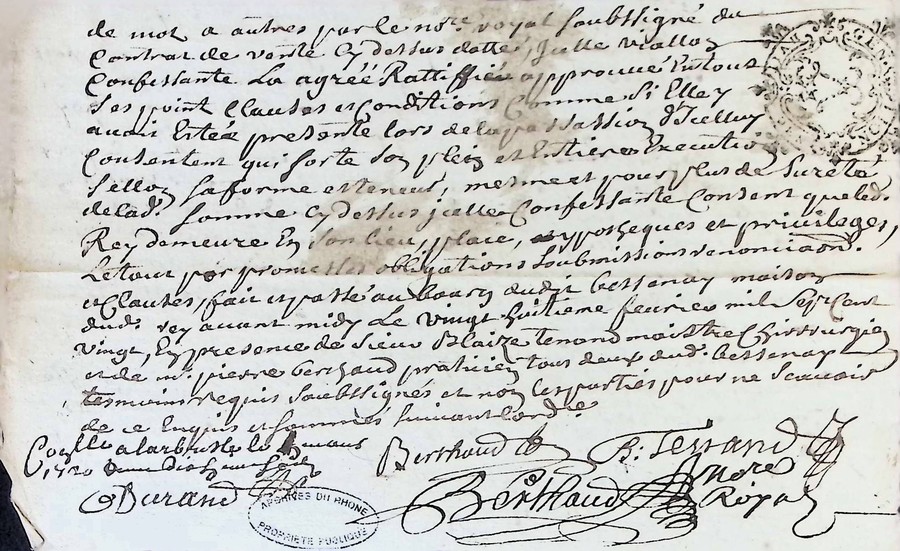 de mot a autres par le no.re royal soubssigné du
contrat de vente cy dessus datté, Jcelle vialloz
Confessante La agréé Rattiffié approuvé En tout
ses point Clauses et conditions Comme Si Elley
avait Estée presente lors de la passassion d'Jcelluy
Consentent qui sorte son plein et Entiere Executio
selloz sa forme et teneur, mesme et pour plus de sureté
de lad. somme cy dessus jcelle Confessante Consent que led.
Rey demeure En son lieu, place, yposheques et privileges,
Le tout par promesses obligations soubmissions renonciaon.
et Clauses, fait et passé au bourg dudit bessenay maison
dud. rey avant midy Le vingt huitieme fevrier mil sept Cent
vingt, En presence de sieur Blaize tenond maistre Chirurgien
et de m.e pierre berthaud praticien tous deux dud. bessenay
tesmoins requis soubssignés et non les parties pour ne scavoir
de ce Enquis et sommés suivant lord.e
Con.llé a larbresle le mars
1720
Berthaud B. Terrand
Durand Berthaud No.re Royal
ARCHIVES DU RHONE
PROPRIETE PUBLIQUE